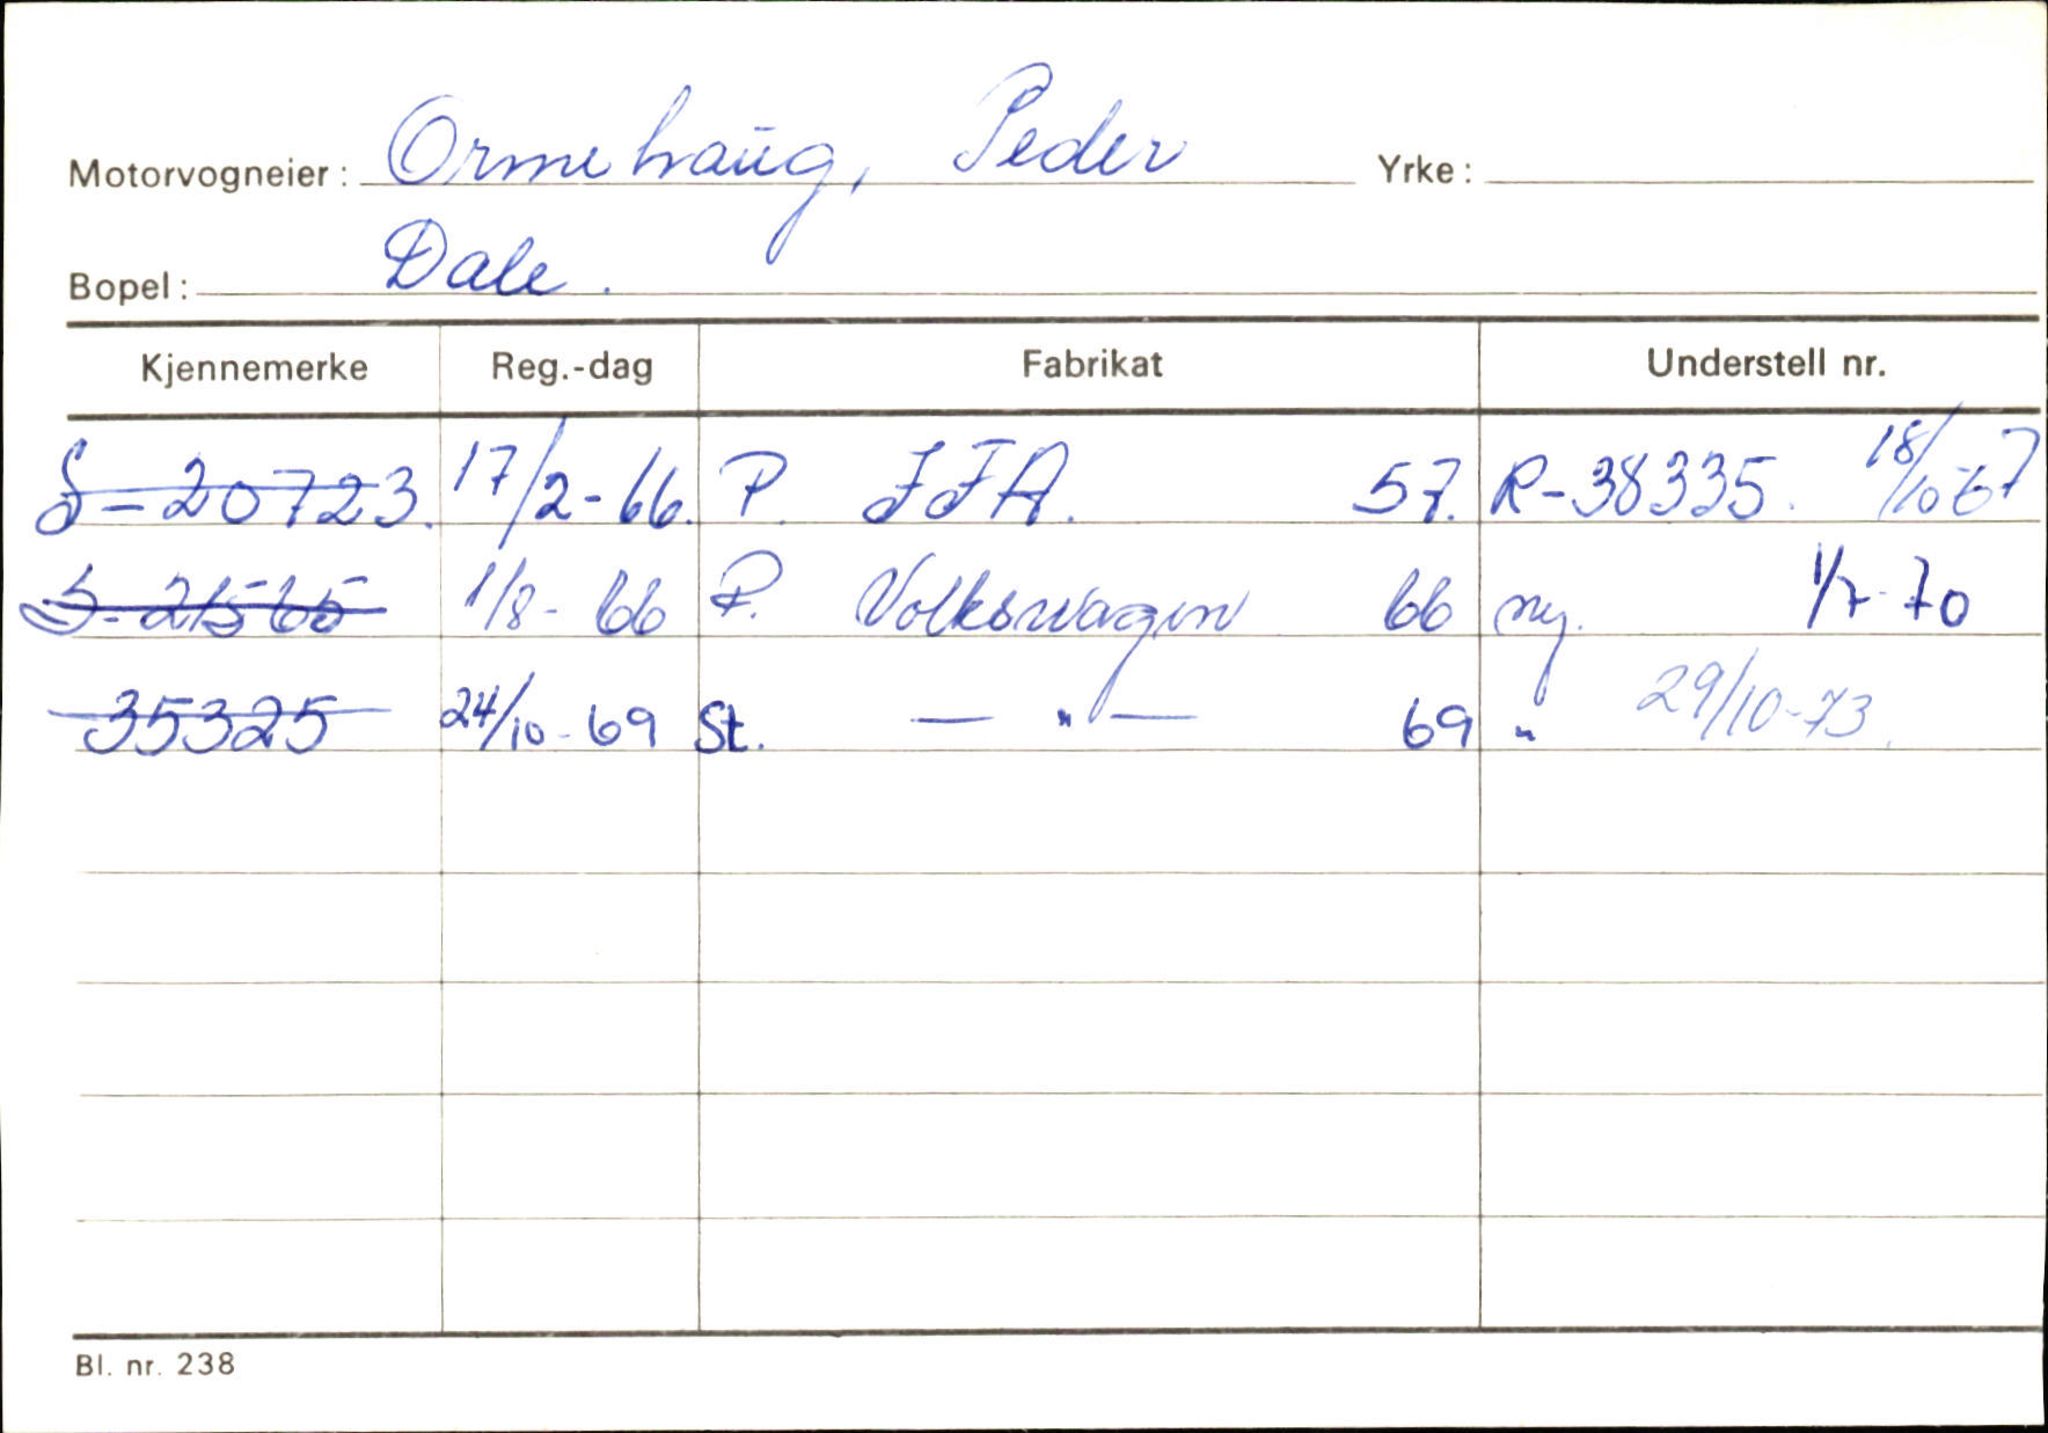 Motorvogneier: Ormehaug, Peder Yrke:
Bopel: Dale.
Kjennemerke Reg.-dag Fabrikat Understell nr.
S-20723. 17/2-66. P. IFA. 57. R-38335. 18/10-67
S-21565 1/8-66 P. Volkswagen 66 ny. 1/7-70
35325 24/10-69 St. — " — 69 " 29/10-73.
Bl. nr. 238